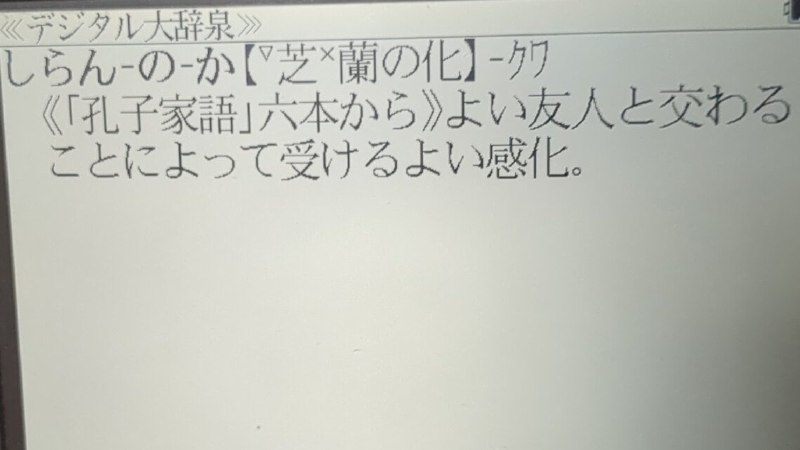 ≪デジタル大辞泉≫
しらん-の-か【▽芝×蘭の化】-クワ
《「孔子家語」六本から》よい友人と交わる
ことによって受けるよい感化。